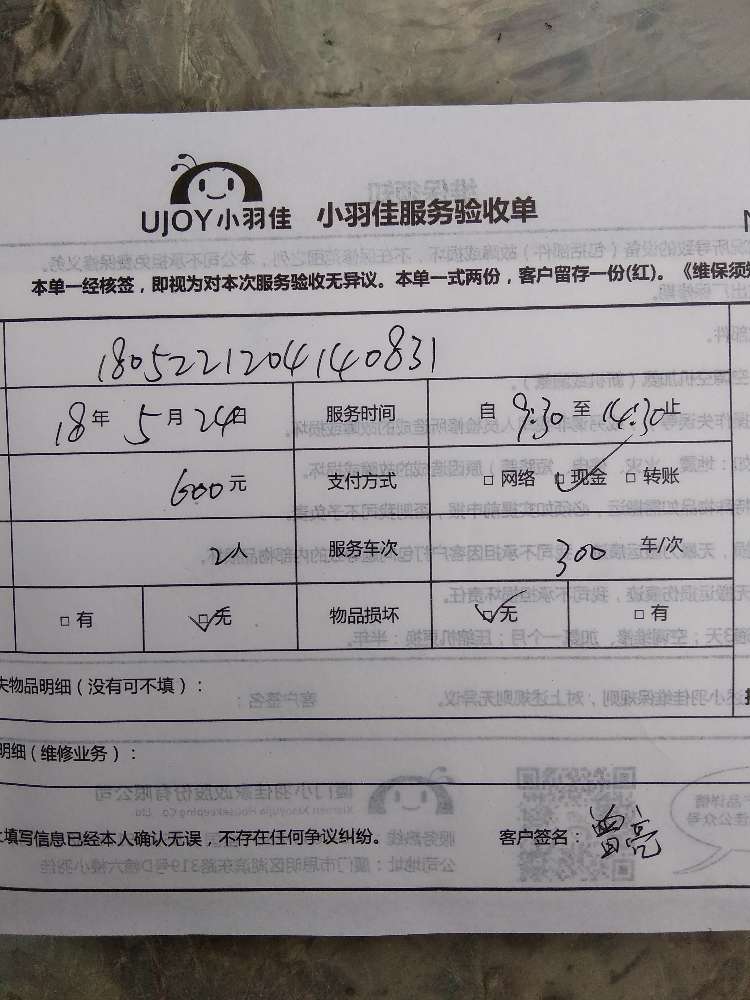 UJOY小羽佳 小羽佳服务验收单
本单一经核签，即视为对本次服务验收无异议。本单一式两份，客户留存一份(红)。《维保须知
180522121204140831
18年 5月 24日 服务时间 自 9:30 至 14:30 止
600元 支付方式 □ 网络 □ 现金 □ 转账
2人 服务车次 300 车/次
□ 有 □ 无 物品损坏 □ 无 □ 有
失物品明细（没有可不填）：
明细（维修业务）：
填写信息已经本人确认无误，不存在任何争议纠纷。 客户签名：